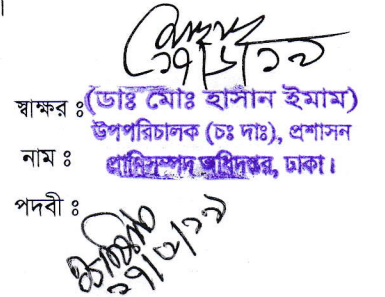 ১৭/৬/১৯
স্বাক্ষর ঃ (ডাঃ মোঃ হাসান ইমাম)
উপপরিচালক (চঃ দাঃ), প্রশাসন
নাম ঃ প্রাণিসম্পদ অধিদপ্তর, ঢাকা।
পদবী ঃ